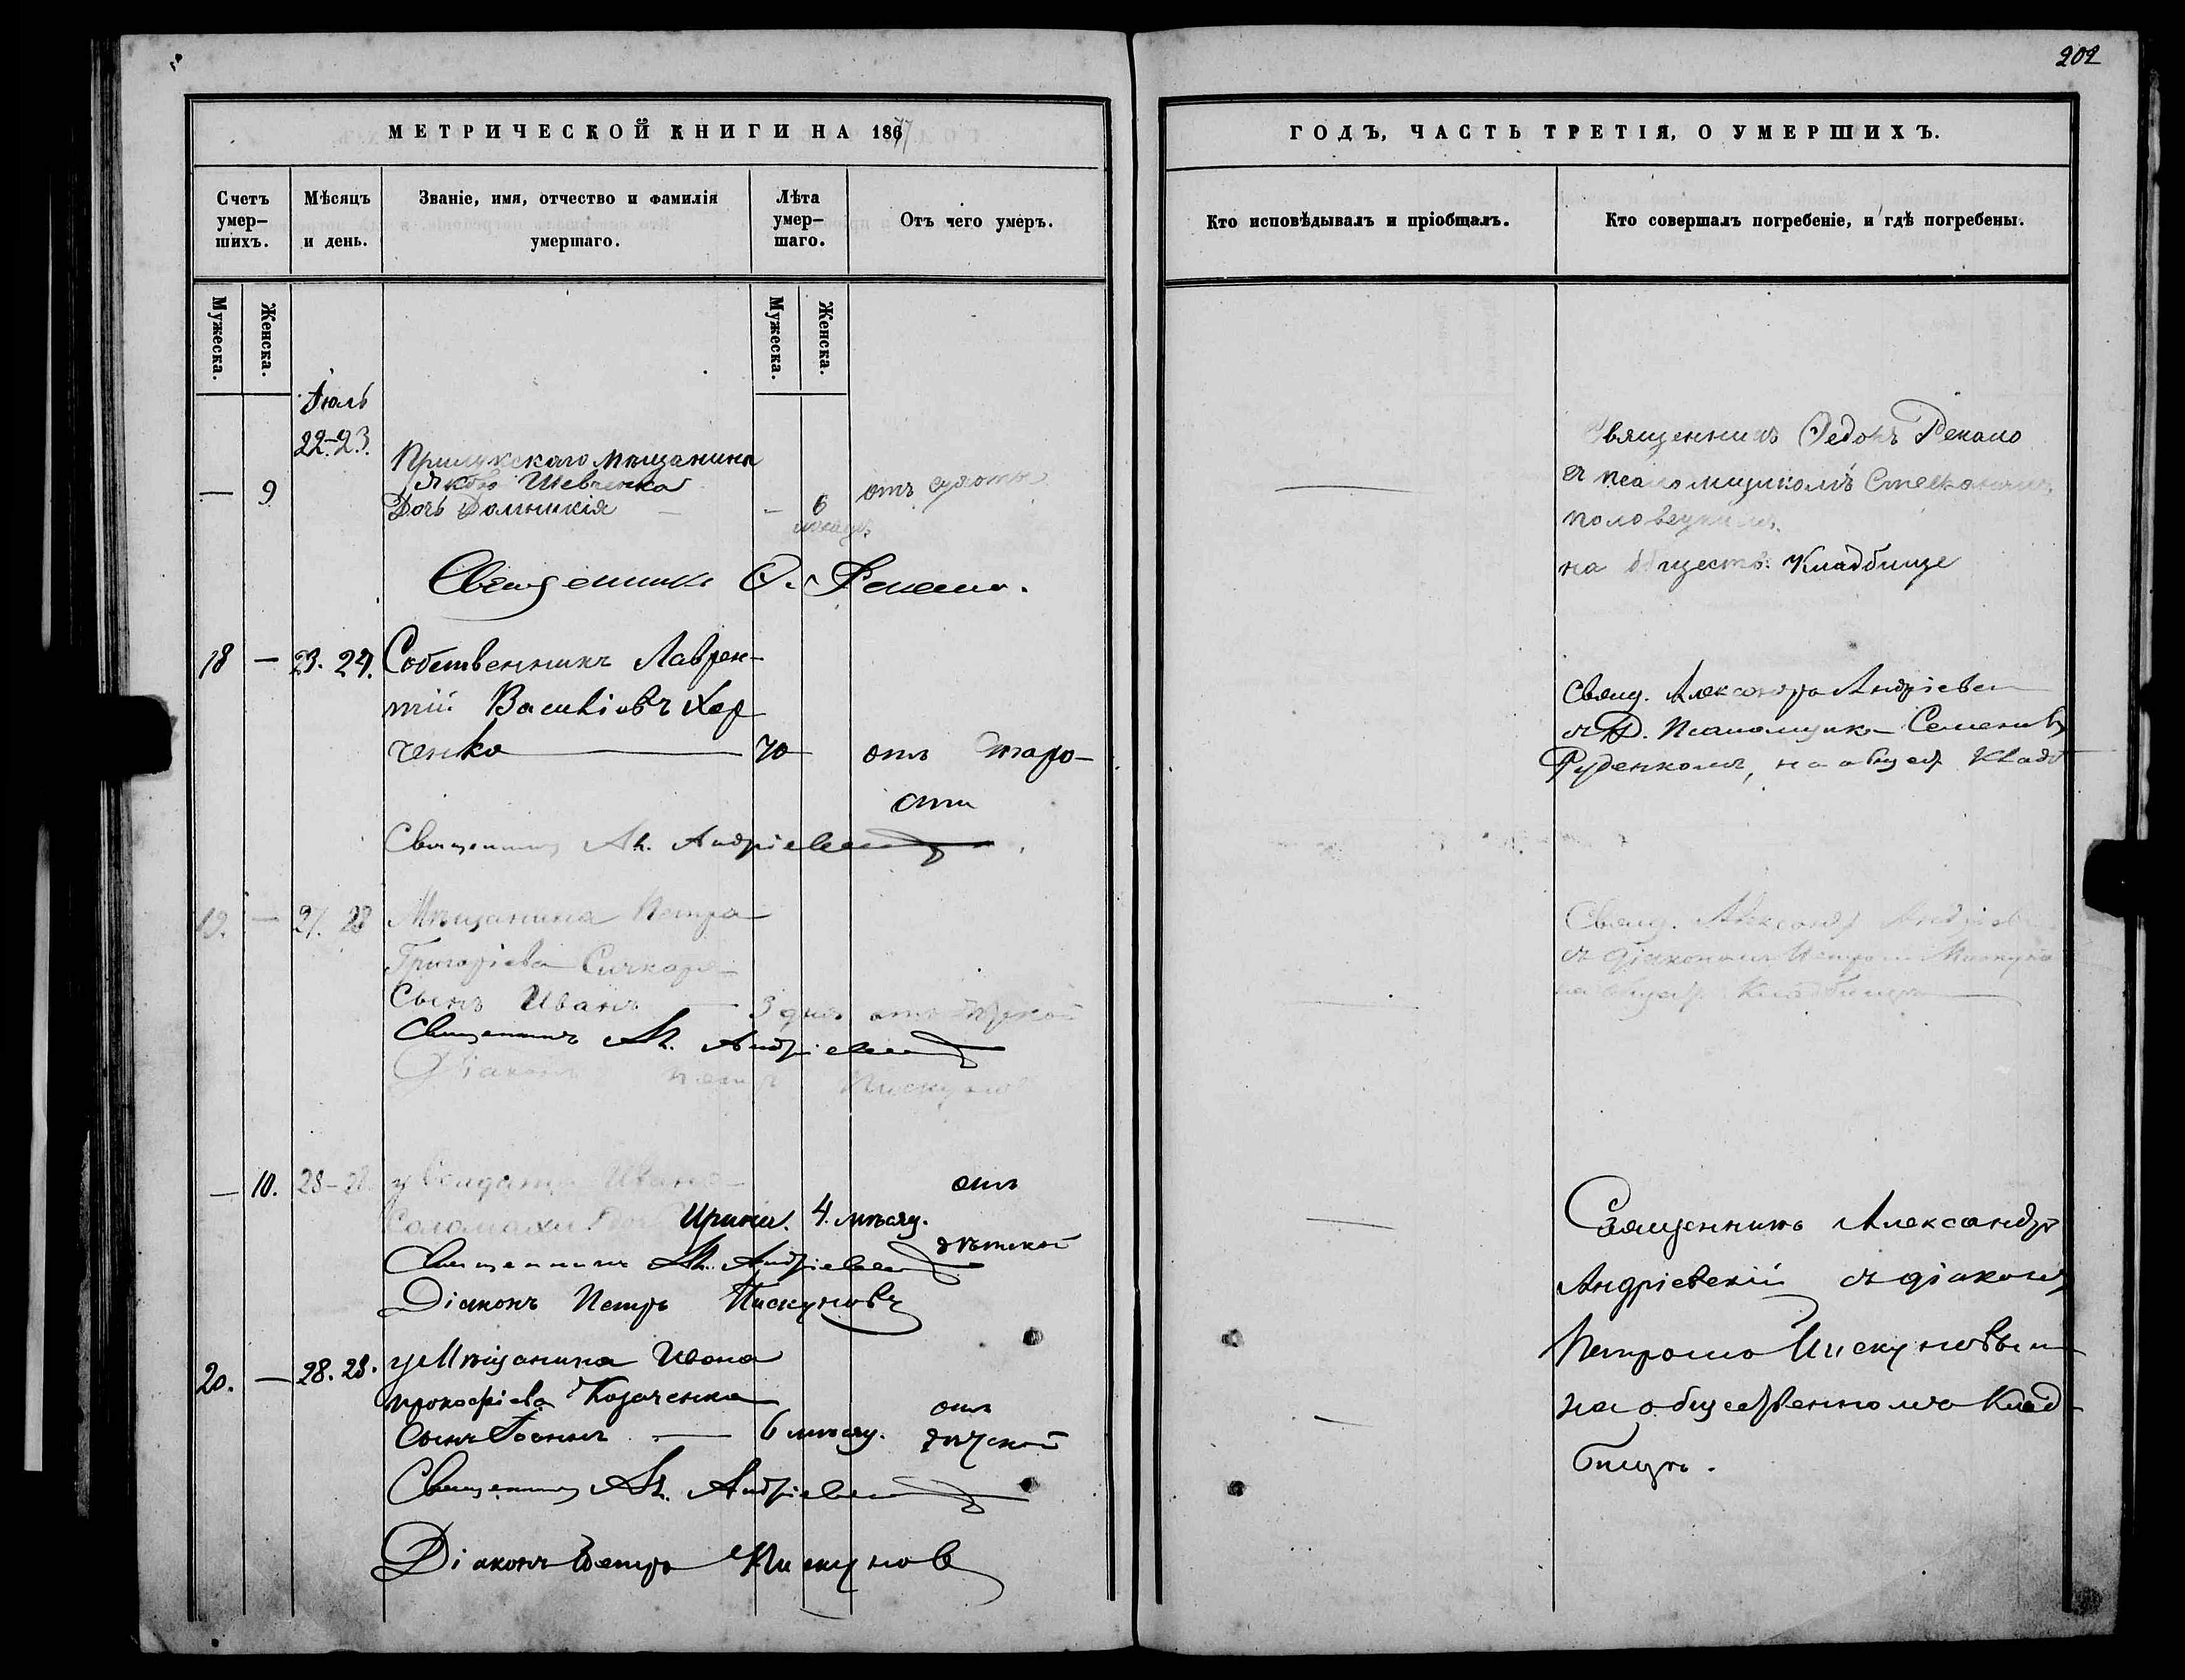 202
МЕТРИЧЕСКОЙ КНИГИ НА 1877
ГОДЪ, ЧАСТЬ ТРЕТІЯ, О УМЕРШИХЪ.
Счетъ умер-шихъ.
Мѣсяцъ и день.
Званіе, имя, отчество и фамилія умершаго.
Лѣта умер-шаго.
Отъ чего умеръ.
Кто исповѣдывалъ и пріобщалъ.
Кто совершалъ погребеніе, и гдѣ погребены.
Мужеска.
Женска.
Мужеска.
Женска.
Іюль
22-23.
Прилукскаго мѣщанина
— 9 Якова Шевченка
Дочь Домникія — 6 отъ сухоты
мѣсяц.
Священникъ Ѳ. Рекало.
Священникъ Ѳедоръ Рекало
съ псаломщикомъ Стефаномъ
Половецкимъ
на обществ. Кладбище
18 — 23. 24. Собственникъ Лаврен-
тій Василіевъ Хар
ченко — 70 отъ старо-
сти
Священникъ Ал. Андріевскій
Свящ. Александръ Андріевскій
съ И. Д. Псаломщика Семеномъ
Руденкомъ, на общей Кладб
19. — 27. 28 Мѣщанина Петра
Григоріева Сичкаря
Сынъ Иванъ — 3 дня отъ дѣтской
Священникъ Ал. Андріевскій
Діаконъ Петръ Пискуновъ
Свящ. Александръ Андріев
съ діакономъ Петромъ Пискуно
на общей Кладбищѣ
— 10. 28- у Солдата Ивана отъ
Соломахи Дочь Ирина. 4. мѣсяц.
дѣтской
Священникъ Ал. Андріевскій
Діаконъ Петръ Пискуновъ
Священникъ Александръ
Андріевскій съ діаконом
Петромъ Пискуновым
на общественномъ Клад-
бищѣ.
20. — 28. 28. у Мѣщанина Ивана
Прокофіева Козаченка отъ
Сынъ Іоаннъ — 6 мѣсяц. дѣтской
Священникъ Ал. Андріевскій
Діаконъ Петръ Пискунов